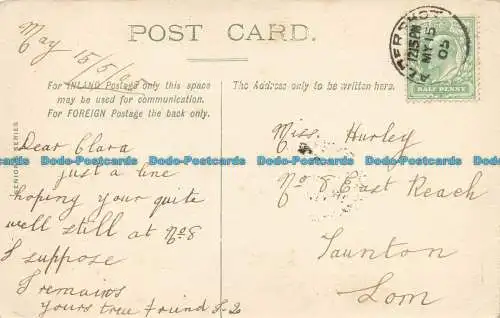 POST CARD.
May 15/5/05
For INLAND Postage only this space
may be used for communication.
For FOREIGN Postage the back only.
The Address only to be written here.
ALDERSHOT
12.15 PM
MY 15
05
HALF PENNY
SERIES
Dear Clara
just a line
hoping your quite
well still at No 8
I suppose
I remains
yours true friend
Miss Hurley
No 8 East Reach
Taunton
Som
Dodo-Postcards Dodo-Postcards Dodo-Postcards Dodo-Postcards